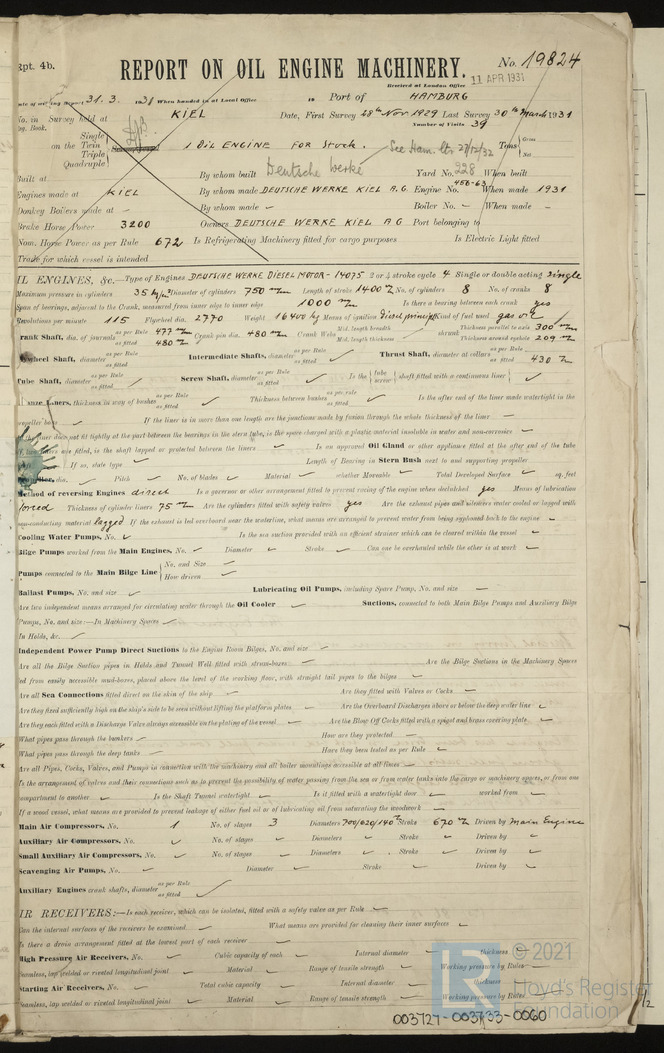 Rpt. 4b.
REPORT ON OIL ENGINE MACHINERY.
No. 19824
Received at London Office
11 APR 1931
Date of writing Report 31. 3. 1931 When handed in at Local Office 19 Port of HAMBURG
No. in Survey held at KIEL Date, First Survey 28th Nov 1929 Last Survey 30th March 1931
Reg. Book.
Number of Visits 39
on the Single Twin Triple Quadruple
1 OIL ENGINE FOR Stock.
See Ham. Ltr 27/12/32
Tons Gross Net
Built at By whom built Deutsche Werke Yard No. 228 When built
Engines made at KIEL By whom made DEUTSCHE WERKE KIEL A.G. Engine No. 456-63 When made 1931
Donkey Boilers made at – By whom made – Boiler No. – When made –
Brake Horse Power 3200 Owners DEUTSCHE WERKE KIEL A G Port belonging to
Nom. Horse Power as per Rule 672 Is Refrigerating Machinery fitted for cargo purposes Is Electric Light fitted
Trade for which vessel is intended
OIL ENGINES, &c.—Type of Engines DEUTSCHE WERKE DIESEL MOTOR - 14075 2 or 4 stroke cycle 4 Single or double acting Single
Maximum pressure in cylinders 35 Diameter of cylinders 750 m/m Length of stroke 1400 m/m No. of cylinders 8 No. of cranks 8
Span of bearings, adjacent to the Crank, measured from inner edge to inner edge 1000 m/m Is there a bearing between each crank yes
Revolutions per minute 115 Flywheel dia. 2770 Weight 16400 kg Means of ignition diesel principle Kind of fuel used gas oil
Crank Shaft, dia. of journals as per Rule 477 m/m as fitted 480 m/m Crank pin dia. 480 m/m Crank Webs Mid. length breadth Mid. length thickness shrunk Thickness parallel to axis 300 m/m Thickness around eyehole 209 m/m
Flywheel Shaft, diameter as per Rule as fitted Intermediate Shafts, diameter as per Rule as fitted Thrust Shaft, diameter at collars as per Rule as fitted 430 m/m
Tube Shaft, diameter as per Rule as fitted Screw Shaft, diameter as per Rule as fitted Is the tube screw shaft fitted with a continuous liner
Bronze Liners, thickness in way of bushes as per Rule as fitted Thickness between bushes as per rule as fitted Is the after end of the liner made watertight in the
propeller boss If the liner is in more than one length are the junctions made by fusion through the whole thickness of the liner
If the liner does not fit tightly at the part between the bearings in the stern tube, is the space charged with a plastic material insoluble in water and non-corrosive
If two liners are fitted, is the shaft lapped or protected between the liners Is an approved Oil Gland or other appliance fitted at the after end of the tube
If so, state type Length of Bearing in Stern Bush next to and supporting propeller
Propeller, dia. Pitch No. of blades Material whether Moveable Total Developed Surface sq. feet
Method of reversing Engines direct Is a governor or other arrangement fitted to prevent racing of the engine when declutched yes Means of lubrication
forced Thickness of cylinder liners 75 m/m Are the cylinders fitted with safety valves yes Are the exhaust pipes and silencers water cooled or lagged with
non-conducting material lagged If the exhaust is led overboard near the waterline, what means are arranged to prevent water from being syphoned back to the engine
Cooling Water Pumps, No. Is the sea suction provided with an efficient strainer which can be cleared within the vessel
Bilge Pumps worked from the Main Engines, No. Diameter Stroke Can one be overhauled while the other is at work
Pumps connected to the Main Bilge Line No. and Size How driven
Ballast Pumps, No. and size Lubricating Oil Pumps, including Spare Pump, No. and size
Are two independent means arranged for circulating water through the Oil Cooler Suctions, connected to both Main Bilge Pumps and Auxiliary Bilge
Pumps, No. and size:—In Machinery Spaces
In Holds, &c.
Independent Power Pump Direct Suctions to the Engine Room Bilges, No. and size
Are all the Bilge Suction pipes in Holds and Tunnel Well fitted with strum-boxes Are the Bilge Suctions in the Machinery Spaces
led from easily accessible mud-boxes, placed above the level of the working floor, with straight tail pipes to the bilges
Are all Sea Connections fitted direct on the skin of the ship Are they fitted with Valves or Cocks
Are they fixed sufficiently high on the ship's side to be seen without lifting the platform plates Are the Overboard Discharges above or below the deep water line
Are they each fitted with a Discharge Valve always accessible on the plating of the vessel Are the Blow Off Cocks fitted with a spigot and brass covering plate
What pipes pass through the bunkers How are they protected
What pipes pass through the deep tanks Have they been tested as per Rule
Are all Pipes, Cocks, Valves, and Pumps in connection with the machinery and all boiler mountings accessible at all times
Is the arrangement of valves and their connections such as to prevent the possibility of water passing from the sea or from water tanks into the cargo or machinery spaces, or from one
compartment to another Is the Shaft Tunnel watertight Is it fitted with a watertight door worked from
If a wood vessel, what means are provided to prevent leakage of either fuel oil or of lubricating oil from saturating the woodwork
Main Air Compressors, No. 1 No. of stages 3 Diameters 700/620/140 m/m Stroke 670 m/m Driven by Main Engine
Auxiliary Air Compressors, No. No. of stages Diameters Stroke Driven by
Small Auxiliary Air Compressors, No. No. of stages Diameters Stroke Driven by
Scavenging Air Pumps, No. Diameter Stroke Driven by
Auxiliary Engines crank shafts, diameter as per Rule as fitted
AIR RECEIVERS:—Is each receiver, which can be isolated, fitted with a safety valve as per Rule
Can the internal surfaces of the receivers be examined What means are provided for cleaning their inner surfaces
Is there a drain arrangement fitted at the lowest part of each receiver
High Pressure Air Receivers, No. Cubic capacity of each Internal diameter thickness
Seamless, lap welded or riveted longitudinal joint Material Range of tensile strength Working pressure by Rules
Starting Air Receivers, No. Total cubic capacity Internal diameter thickness
Seamless, lap welded or riveted longitudinal joint Material Range of tensile strength Working pressure by Rules
© 2021
Lloyd's Register
Foundation
003727-003733-0060